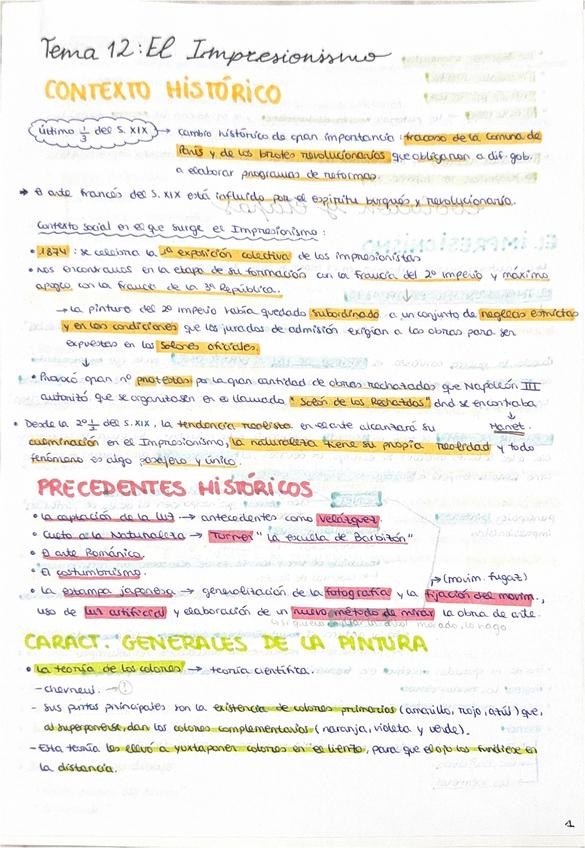 Tema 12: El Impresionismo
CONTEXTO HISTÓRICO
Último 1/3 del S. XIX → cambio histórico de gran importancia: fracaso de la Comuna de
París y de los brotes revolucionarios que obligaron a dif. gob.
a elaborar programas de reformas.
→ El arte francés del S. XIX está influido por el espíritu burgués y revolucionario.
Contexto social en el que surge el Impresionismo:
• 1874: se celebra la 1ª exposición colectiva de los impresionistas
• Nos encontramos en la etapa de su formación con la Francia del 2º Imperio y máximo
apogeo con la Francia de la 3ª República.
↓
→ la pintura del 2º imperio había quedado subordinado a un conjunto de reglas estrictas
y en las condiciones que los jurados de admisión exigían a las obras para ser
expuestas en los salones oficiales.
↓
• Provocó gran nº protestas por la gran cantidad de obras rechazadas que Napoleón III
autorizó que se organizasen en el llamado "Salón de los Rechazados" dnd se encontraba
↓
Manet.
• Desde la 2º 1/2 del S. XIX, la tendencia realista en el arte alcanzará su
culminación en el Impresionismo, la naturaleza tiene su propia realidad y todo
fenómeno es algo pasajero y único.
PRECEDENTES HISTÓRICOS
• La captación de la luz → antecedentes como Velázquez.
• Culto a la Naturaleza → Turner "la escuela de Barbizón"
• El arte Románico.
• El costumbrismo.
→ (movim. fugaz)
• La estampa japonesa → generalización de la fotografía y la fijación del movim.,
uso de luz artificial y elaboración de un nuevo método de mirar la obra de arte.
CARACT. GENERALES DE LA PINTURA
• La teoría de los colores → teoría científica.
- chevreul. → !
- Sus puntos principales son la existencia de colores primarios (amarillo, rojo, azul) que,
al superponerse, dan los colores complementarios (naranja, violeta y verde).
- Esta teoría les llevó a yuxtaponer colores en el lienzo, para que el ojo los fundiese en
la distancia.
1